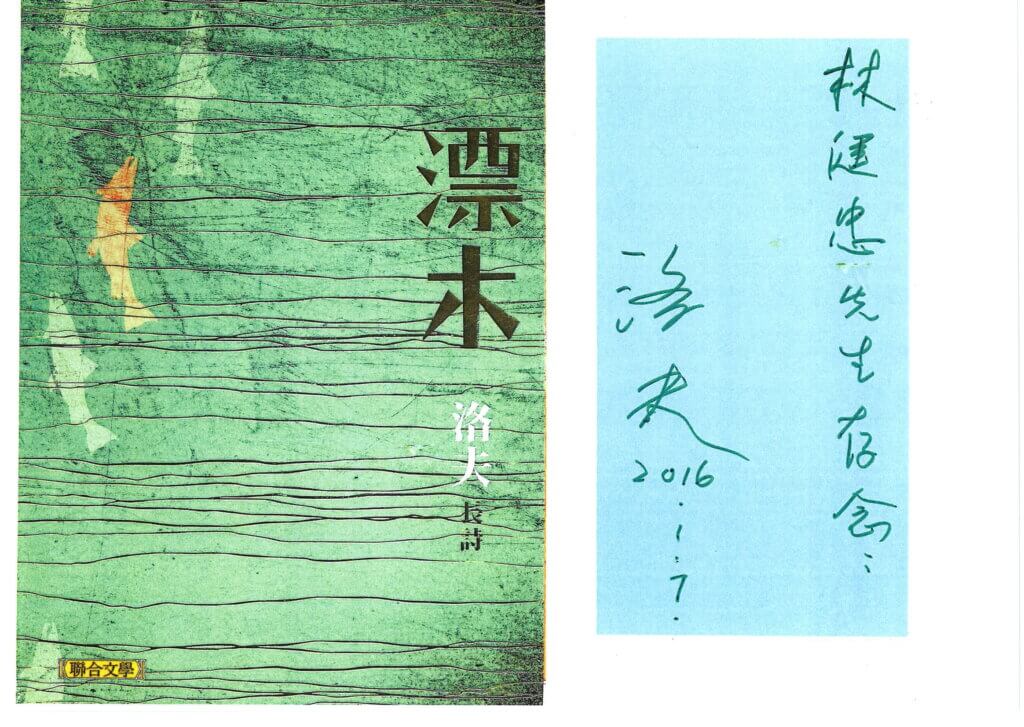 漂木
洛夫
長詩
聯合文學
林健忠先生存念：
洛夫
2016.1.7.